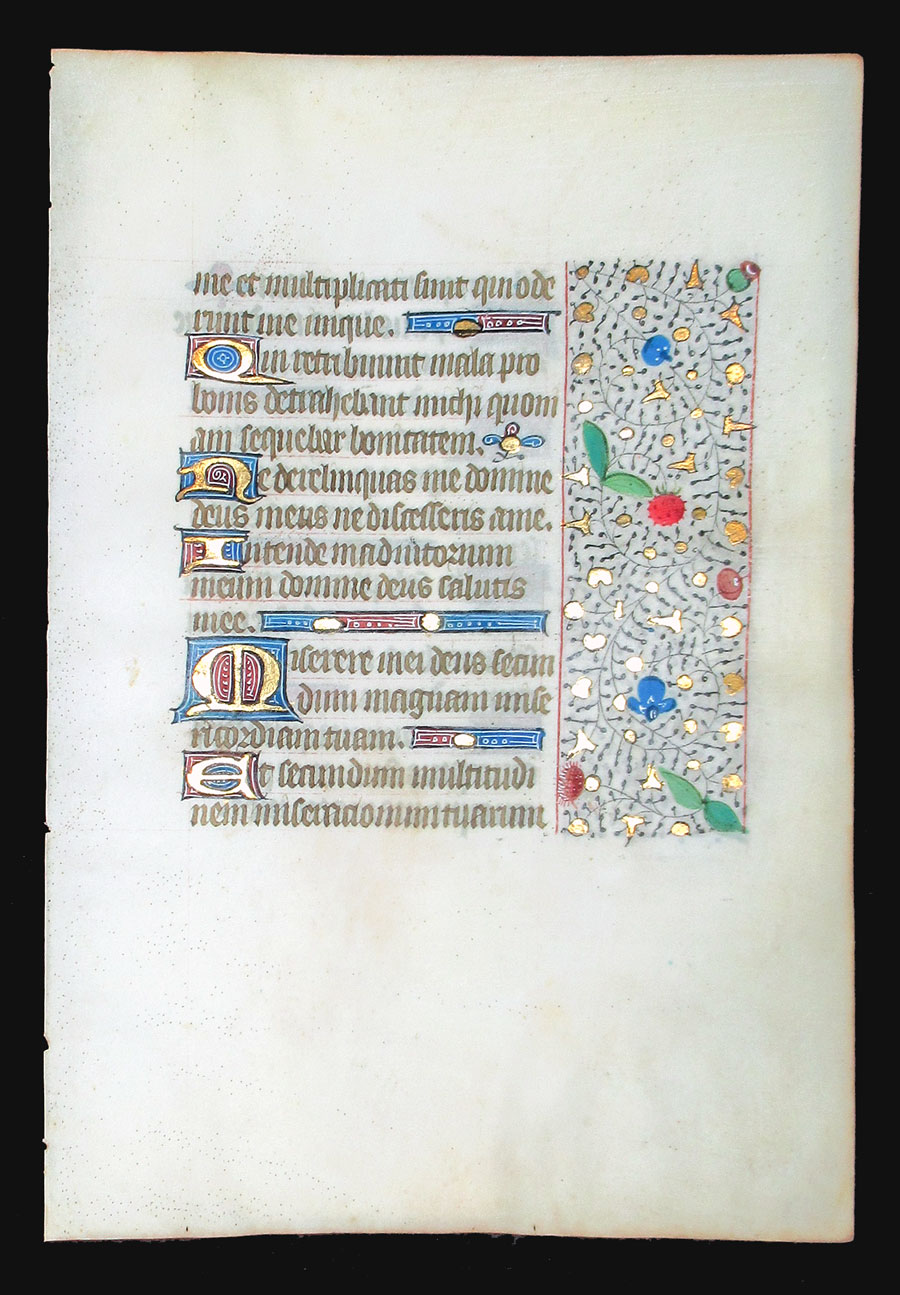 me et multiplicati sunt qui ode
runt me inique.
Qui retribuunt mala pro
bonis detrahebant michi quoni
am sequebar bonitatem.
Ne derelinquas me domine
deus meus ne discesseris ame.
Intende in adiutorium
meum domine deus salutis
mee.
Miserere mei deus secun
dum magnam mise
ricordiam tuam.
Et secundum multitudi
nem miserationum tuarum